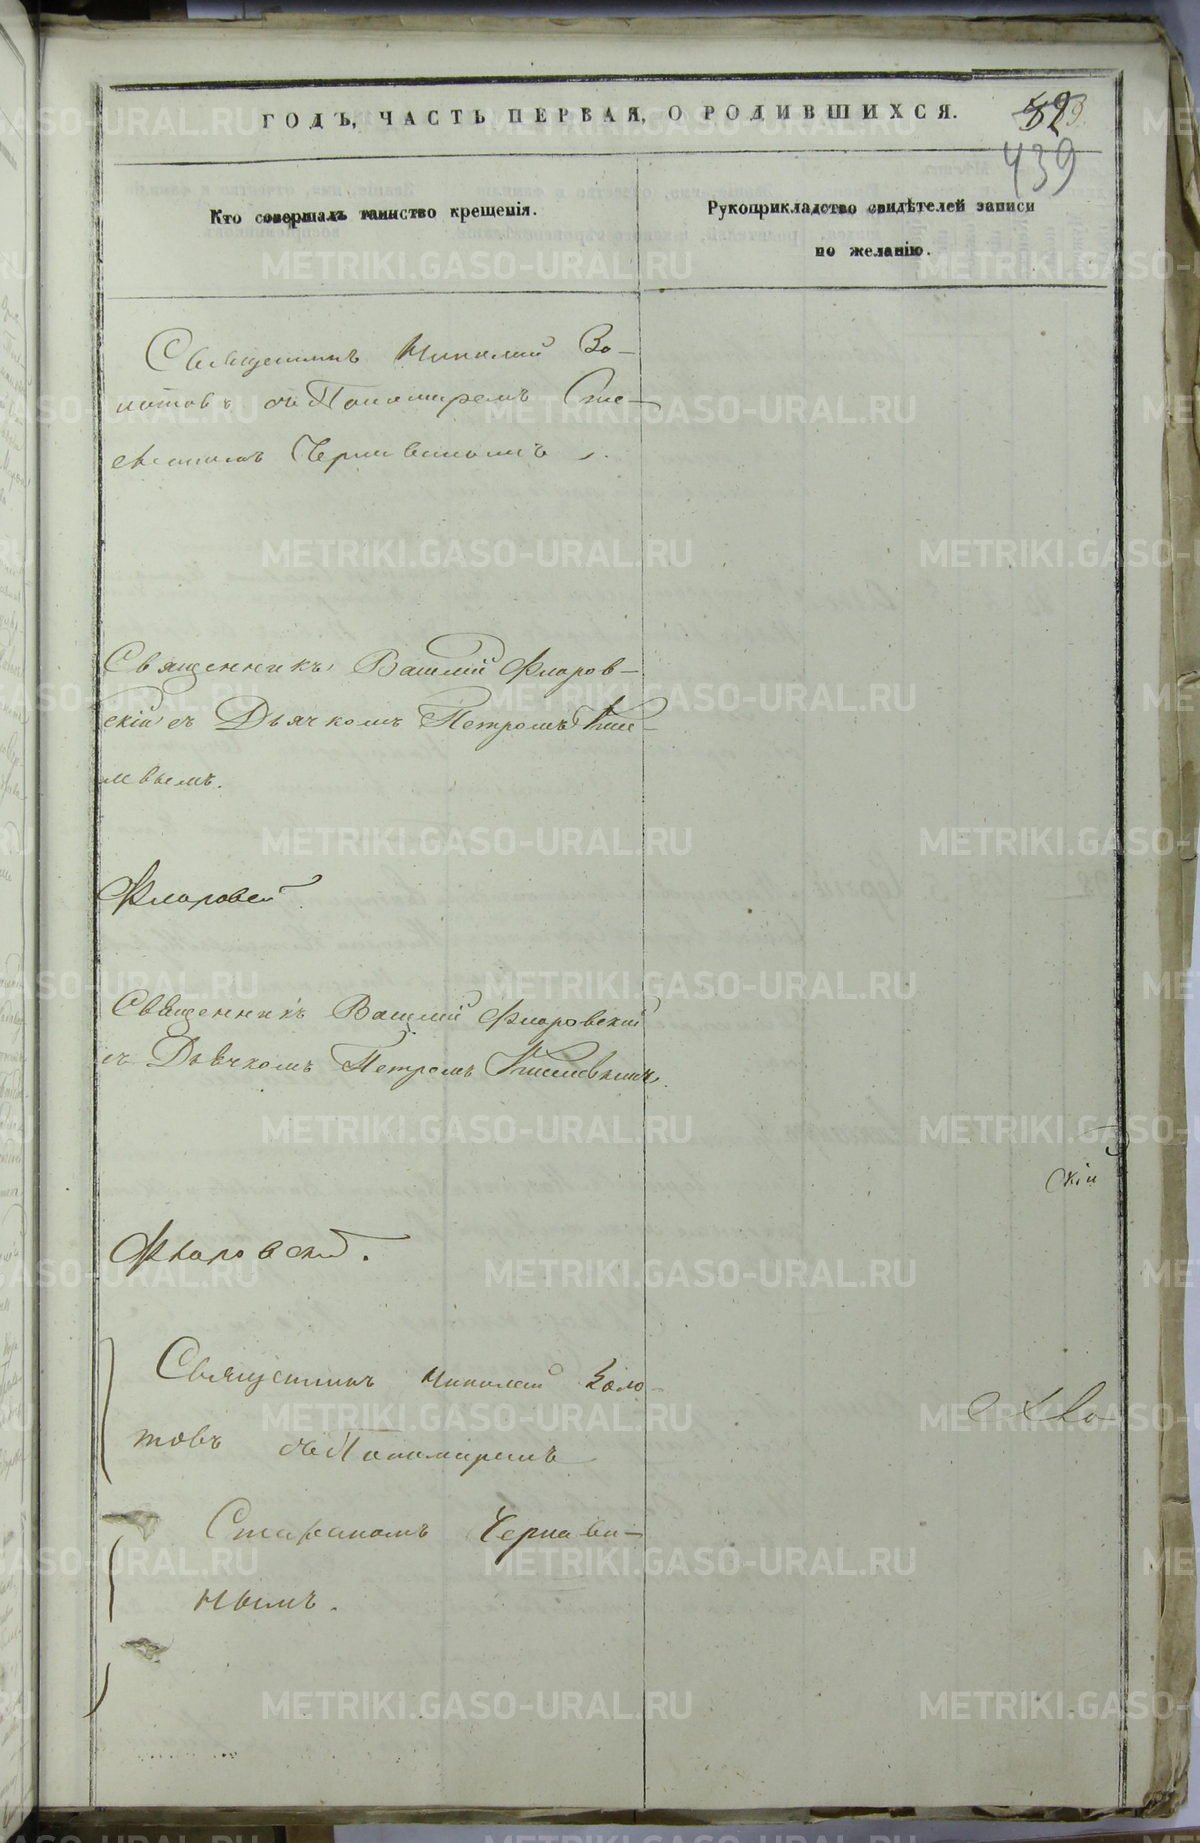 ГОДЪ, ЧАСТЬ ПЕРВАЯ, О РОДИВШИХСЯ.
439
Кто совершалъ таинство крещенія.
Рукоприкладство свидѣтелей записи
по желанію.
Священникъ Николай Зо-
лотовъ съ Пономаремъ Сте-
фаномъ Чернавинымъ.
Священникъ Василій Флоров-
скій съ Дьячкомъ Петромъ Кисе-
левымъ.
Флоровскій
Священникъ Василій Флоровскій
съ Дьячкомъ Петромъ Киселевымъ.
скій
Флоровскій.
Священникъ Николай Золо-
товъ съ Пономаремъ
Стефаномъ Чернави-
нымъ.
METRIKI.GASO-URAL.RU